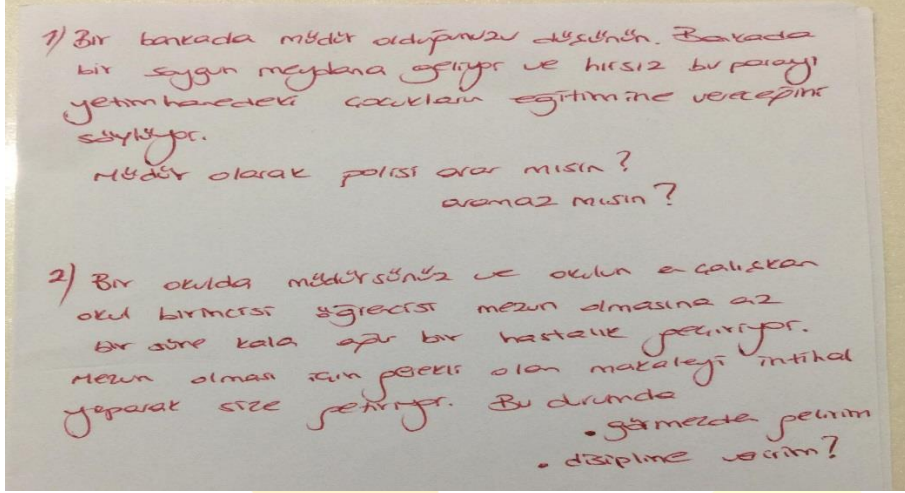 1) Bir bankada müdür olduğunuzu düşünün. Bankada
bir soygun meydana geliyor ve hırsız bu parayı
yetimhanedeki çocukların eğitimine vereceğini
söylüyor.
Müdür olarak polisi arar mısın?
aramaz mısın?
2) Bir okulda müdürsünüz ve okulun en çalışkan
okul birincisi öğrencisi mezun olmasına az
bir süre kala ağır bir hastalık geçiriyor.
Mezun olması için gerekli olan makaleyi intihal
yaparak size getiriyor. Bu durumda
• görmezden gelirim
• disipline veririm?